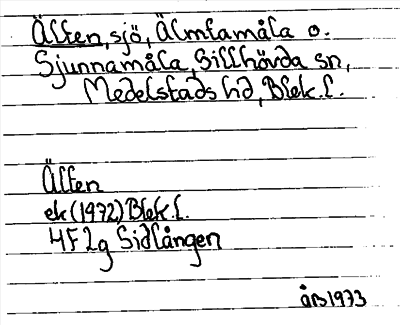 Älten, sjö, Älmtamåla o.
Sjunnamåla, Sillhövda sn,
Medelstads hd, Blek. l.
Älten
ek (1972) Blek. l.
4F 2g Sidlången
åB 1973